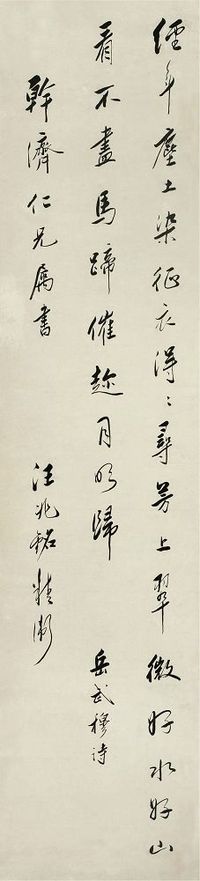 經年塵土染征衣得〻尋芳上翠微好水好山
看不盡馬蹄催趂月明歸
岳武穆诗
幹濟仁兄屬書
汪兆銘精衛